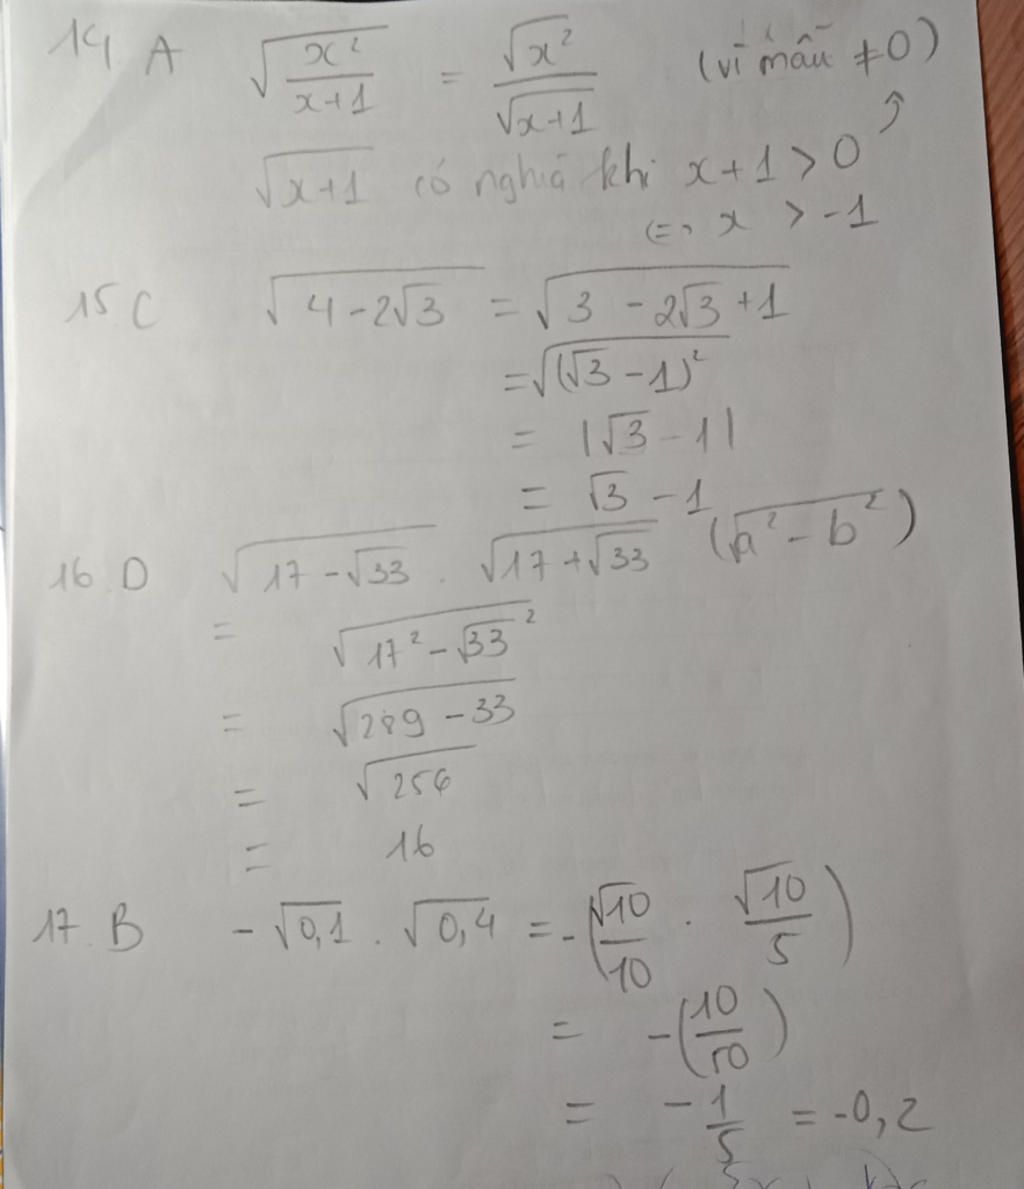 14. A √(x²/(x+1)) = √x²/√(x+1) (vì mẫu ≠0)
√(x+1) có nghĩa khi x+1 > 0
<=> x > -1
15. C √(4-2√3) = √(3 - 2√3 +1)
= √((√3 - 1)²)
= |√3 - 1|
= √3 - 1
16. D √(17-√33) . √(17+√33) (√(a² - b²))
= √(17² - √33²)
= √(289 - 33)
= √256
= 16
17. B -√0,1 . √0,4 = -(√10/10 . √10/5)
= -(10/50)
= -1/5 = -0,2